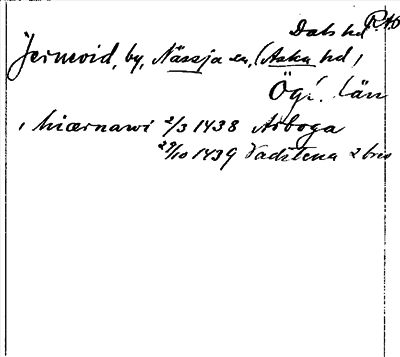 Dals hd R.A0
Jernevid, by, Nässja sn, (Aska hd,
Ög. län
, hiærnawi 2/3 1438 Arboga
29/10 1439 Vadstena 2 brev